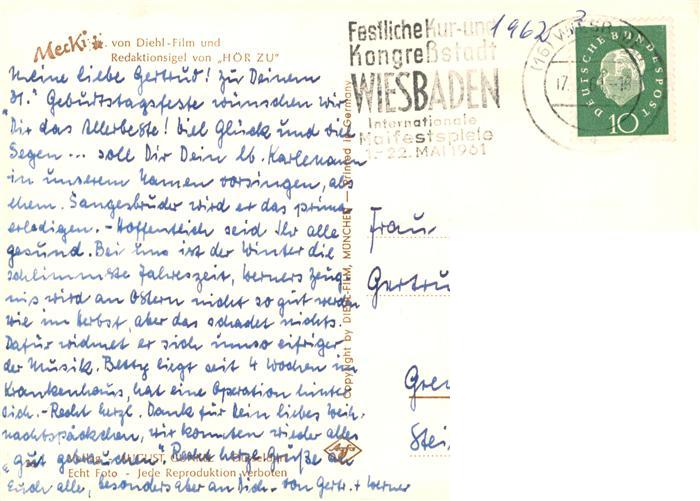 Mecki von Diehl-Film und
Redaktionsigel von „HÖR ZU"
Meine liebe Gertrud! Zu Deinem
31. Geburtstagsfeste wünschen wir
Dir das Allerbeste! Viel Glück und viel
Segen... soll Dir Dein lb. Karlemann
in unserem Namen vorsingen, als
ehem. Sangesbruder wird er das prima
erledigen. - Hoffentlich seid Ihr alle
gesund. Bei uns ist der Winter die
schlimmste Jahreszeit, Werners Zeug-
nis wird an Ostern nicht so gut werden
wie im Herbst, aber das schadet nichts.
Dafür widmet er sich umso eifriger
der Musik. Betty liegt seit 4 Wochen im
Krankenhaus, hat eine Operation hinter
sich. - Recht herzl. Dank für Dein liebes Weih-
nachtspäckchen, wir konnten wieder alles
"gut gebrauchen". Recht herzl. Grüße an
Euch alle, besonders aber an Dich. von Gertr. + Werner
AUGUST
Echt Foto - Jede Reproduktion verboten
Copyright by DIEHL-FILM, MÜNCHEN — Printed in Germany
Agfa
Festliche Kur- und
Kongreßstadt
WIESBADEN
Internationale
Maifestspiele
1.-22. MAI 1961
1962 ?
(16) WIESB
17.
DEUTSCHE BUNDESPOST
10
Frau
Gertru
Gre
Stei